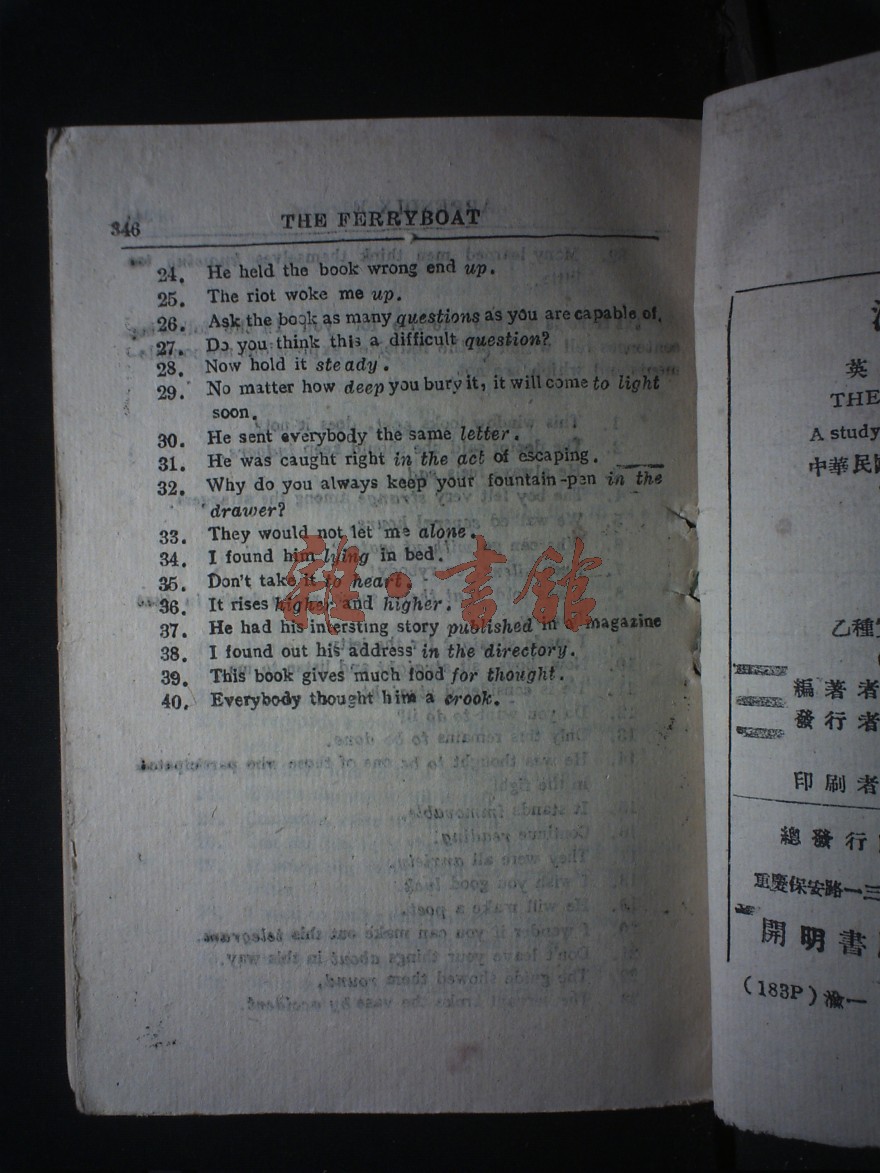 346 THE FERRYBOAT
24. He held the book wrong end up.
25. The riot woke me up.
26. Ask the book as many questions as you are capable of.
27. Do you think this a difficult question?
28. Now hold it steady.
29. No matter how deep you bury it, it will come to light
soon.
30. He sent everybody the same letter.
31. He was caught right in the act of escaping.
32. Why do you always keep your fountain-pen in the
drawer?
33. They would not let me alone.
34. I found him lying in bed.
35. Don't take it to heart.
36. It rises higher and higher.
37. He had his intersting story published in a magazine
38. I found out his address in the directory.
39. This book gives much food for thought.
40. Everybody thought him a crook.
雜·書館
英
THE
A study
中華民國
乙種
編著者
發行者
印刷者
總發行
重慶保安路一三
開明書
(183P) 渝一